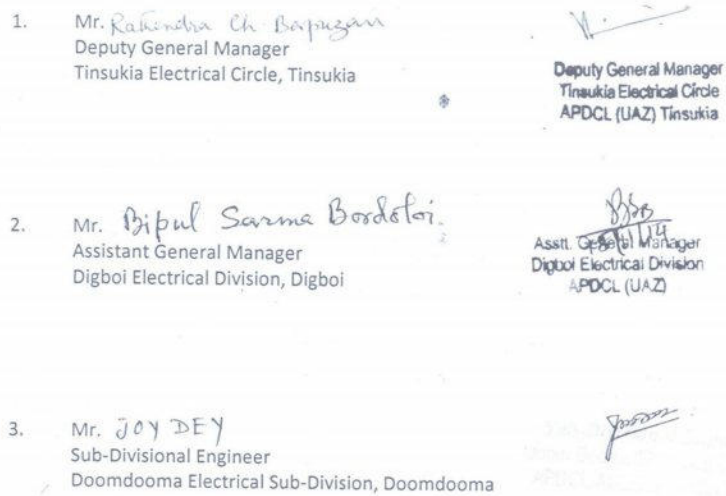 1. Mr. Rahindra Ch. Borpuzari
Deputy General Manager
Tinsukia Electrical Circle, Tinsukia
Deputy General Manager
Tinsukia Electrical Circle
APDCL (UAZ) Tinsukia
2. Mr. Bipul Sarma Bordoloi.
Assistant General Manager
Digboi Electrical Division, Digboi
Asstt. General Manager
Digboi Electrical Division
APDCL (UAZ)
3. Mr. JOY DEY
Sub-Divisional Engineer
Doomdooma Electrical Sub-Division, Doomdooma